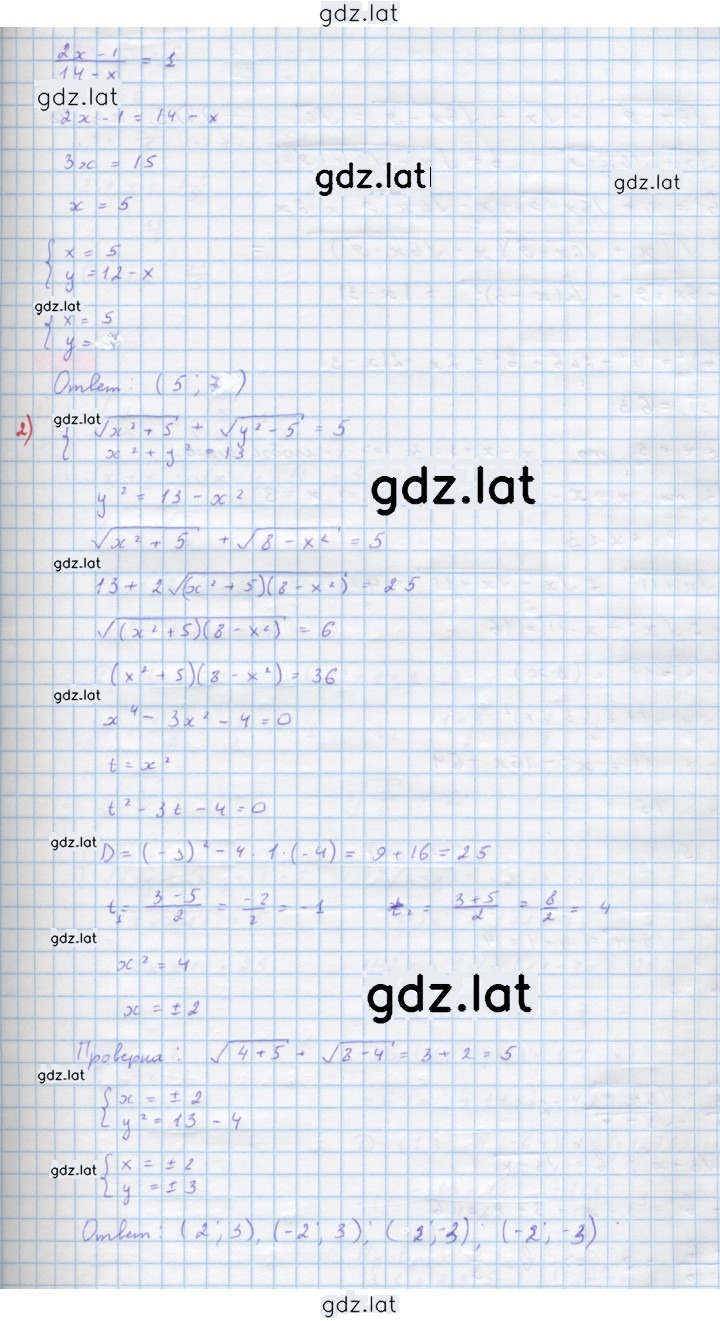 gdz.lat
(2x - 1)/(14 - x) = 1
gdz.lat
2x - 1 = 14 - x
3x = 15
gdz.lat
gdz.lat
x = 5
{ x = 5
y = 12 - x
gdz.lat
{ x = 5
y = 7
Ответ: (5; 7)
gdz.lat
2) { √(x² + 5) + √(y² - 5) = 5
x² + y² = 13
gdz.lat
y² = 13 - x²
√(x² + 5) + √(8 - x²) = 5
gdz.lat
13 + 2√((x² + 5)(8 - x²)) = 25
√((x² + 5)(8 - x²)) = 6
(x² + 5)(8 - x²) = 36
gdz.lat
x⁴ - 3x² - 4 = 0
t = x²
t² - 3t - 4 = 0
gdz.lat
D = (-3)² - 4 · 1 · (-4) = 9 + 16 = 25
t₁ = (3 - 5)/2 = -2/2 = -1 t₂ = (3 + 5)/2 = 8/2 = 4
gdz.lat
x² = 4
gdz.lat
x = ± 2
Проверка: √(4 + 5) + √(8 - 4) = 3 + 2 = 5
gdz.lat
{ x = ± 2
y² = 13 - 4
gdz.lat
{ x = ± 2
y = ± 3
Ответ: (2; 3), (-2; 3); (2; -3); (-2; -3)
gdz.lat